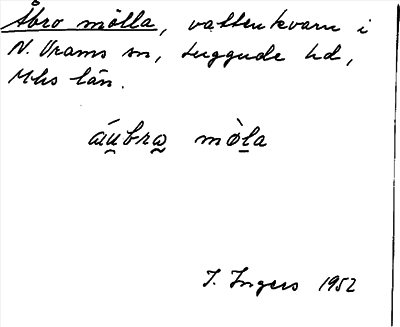 Åbro mölla, vattenkvarn i
N. Vrams sn, Luggude hd,
Mhs län.
áu̯bra̰ mòḻa
I. Ingers 1952